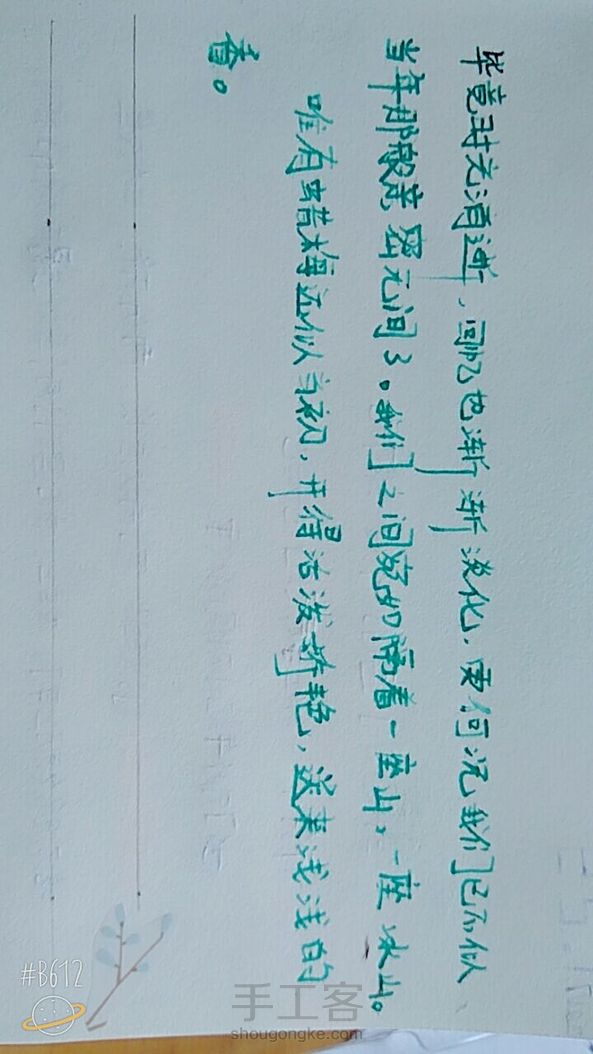 毕竟时光消逝，回忆也渐渐淡化，更何况我们已不似
当年那般亲密无间了。我们之间宛如隔着一座山，一座冰山。
唯有腊梅还似当初，开得活泼娇艳，送来浅浅的
香。
#B612
手工客
shougongke.com